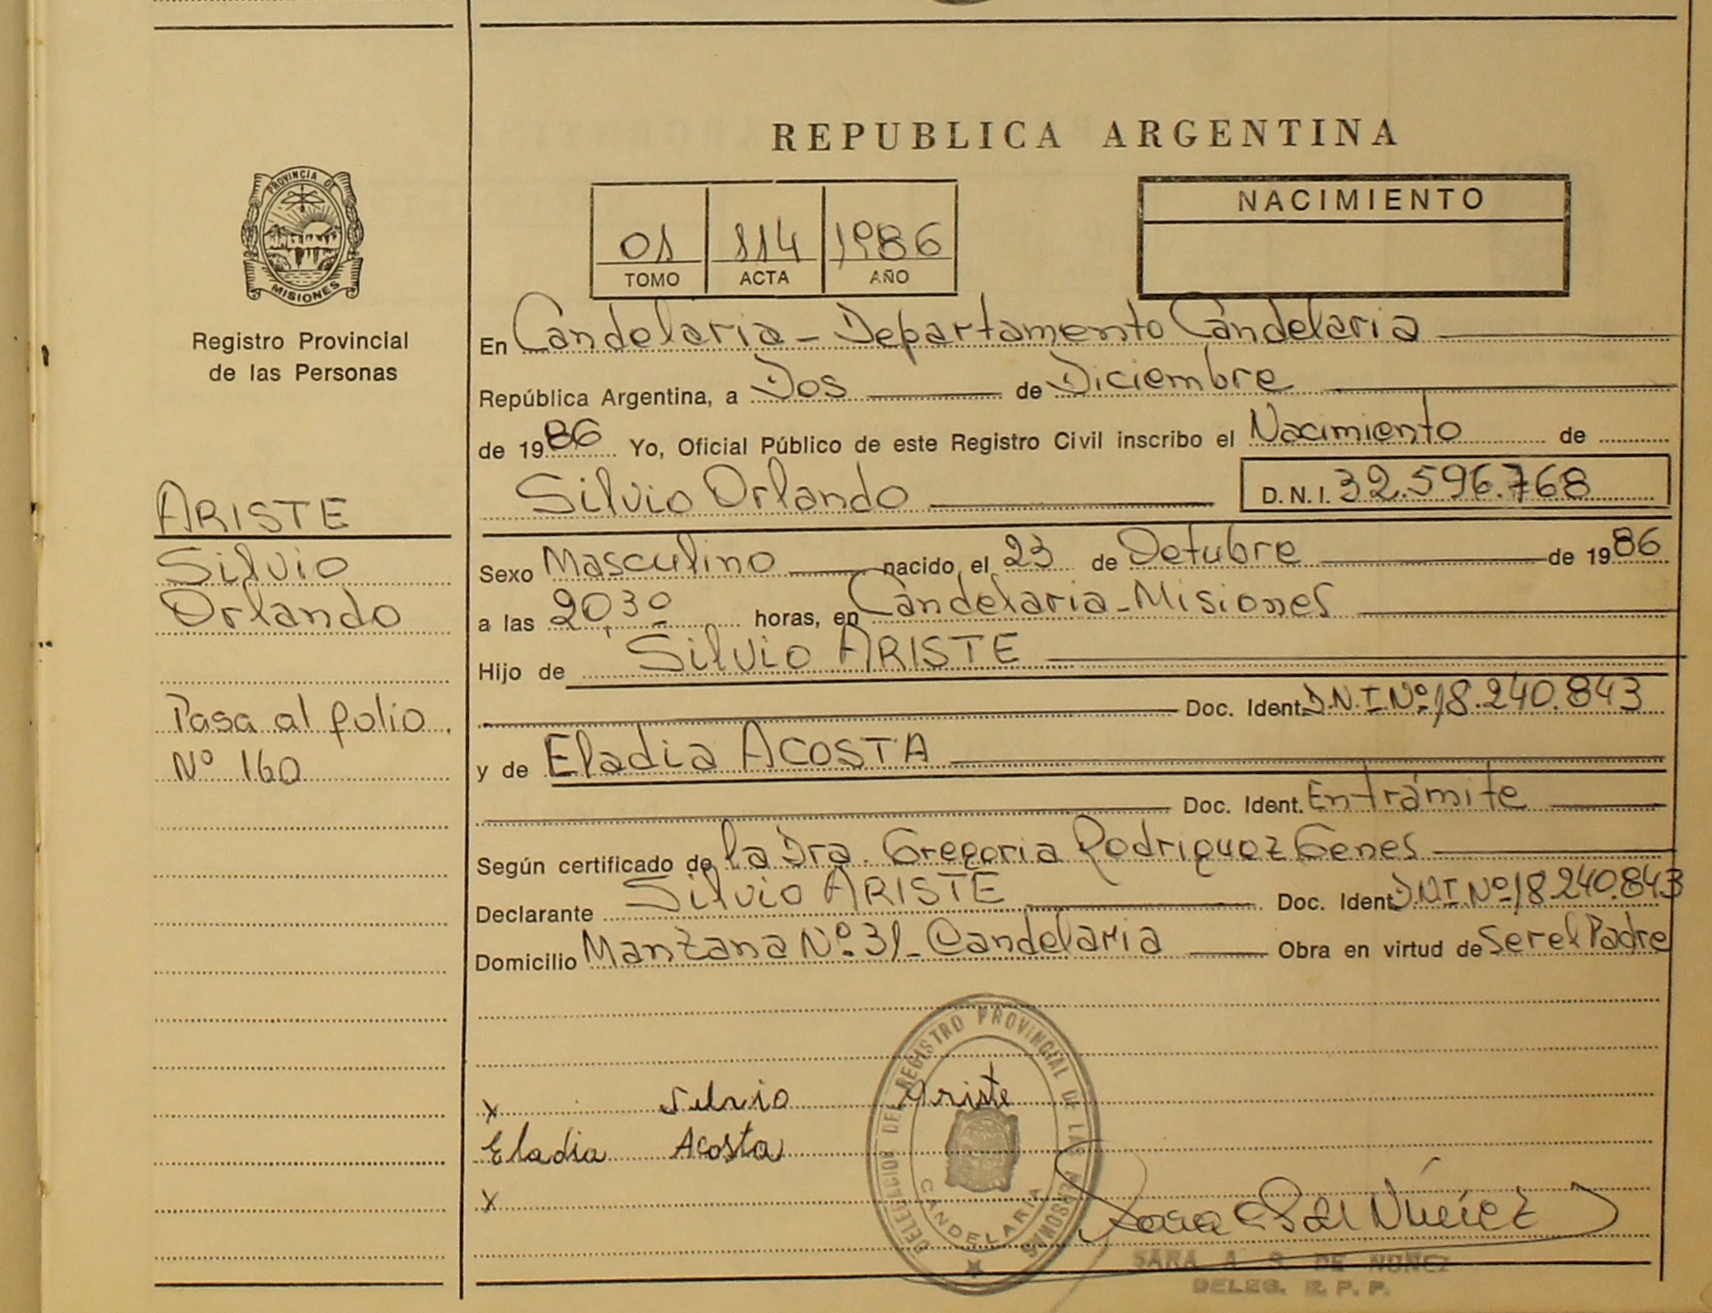 REPUBLICA ARGENTINA
PROVINCIA DE
MISIONES
Registro Provincial
de las Personas
01 114 1986
TOMO ACTA AÑO
NACIMIENTO
En Candelaria - Departamento Candelaria
República Argentina, a Dos de Diciembre
de 1986 Yo, Oficial Público de este Registro Civil inscribo el Nacimiento de
Silvio Orlando D.N.I. 32.596.768
ARISTE
Silvio
Orlando
Pasa al folio
Nº 160
Sexo Masculino nacido el 23 de Octubre de 1986
a las 20,30 horas, en Candelaria - Misiones
Hijo de Silvio ARISTE
Doc. Ident. D.N.I. Nº 18.240.843
y de Eladia ACOSTA
Doc. Ident. En trámite
Según certificado de la Dra. Gregoria Rodriguez Genes
Declarante Silvio ARISTE Doc. Ident. D.N.I. Nº 18.240.843
Domicilio Manzana Nº 31 - Candelaria Obra en virtud de Ser el Padre
x Silvio Ariste
Eladia Acosta
x
DELEGACION DEL REGISTRO PROVINCIAL DE LAS PERSONAS
CANDELARIA
SARA A. S. DE NUÑEZ
DELEG. R. P. P.